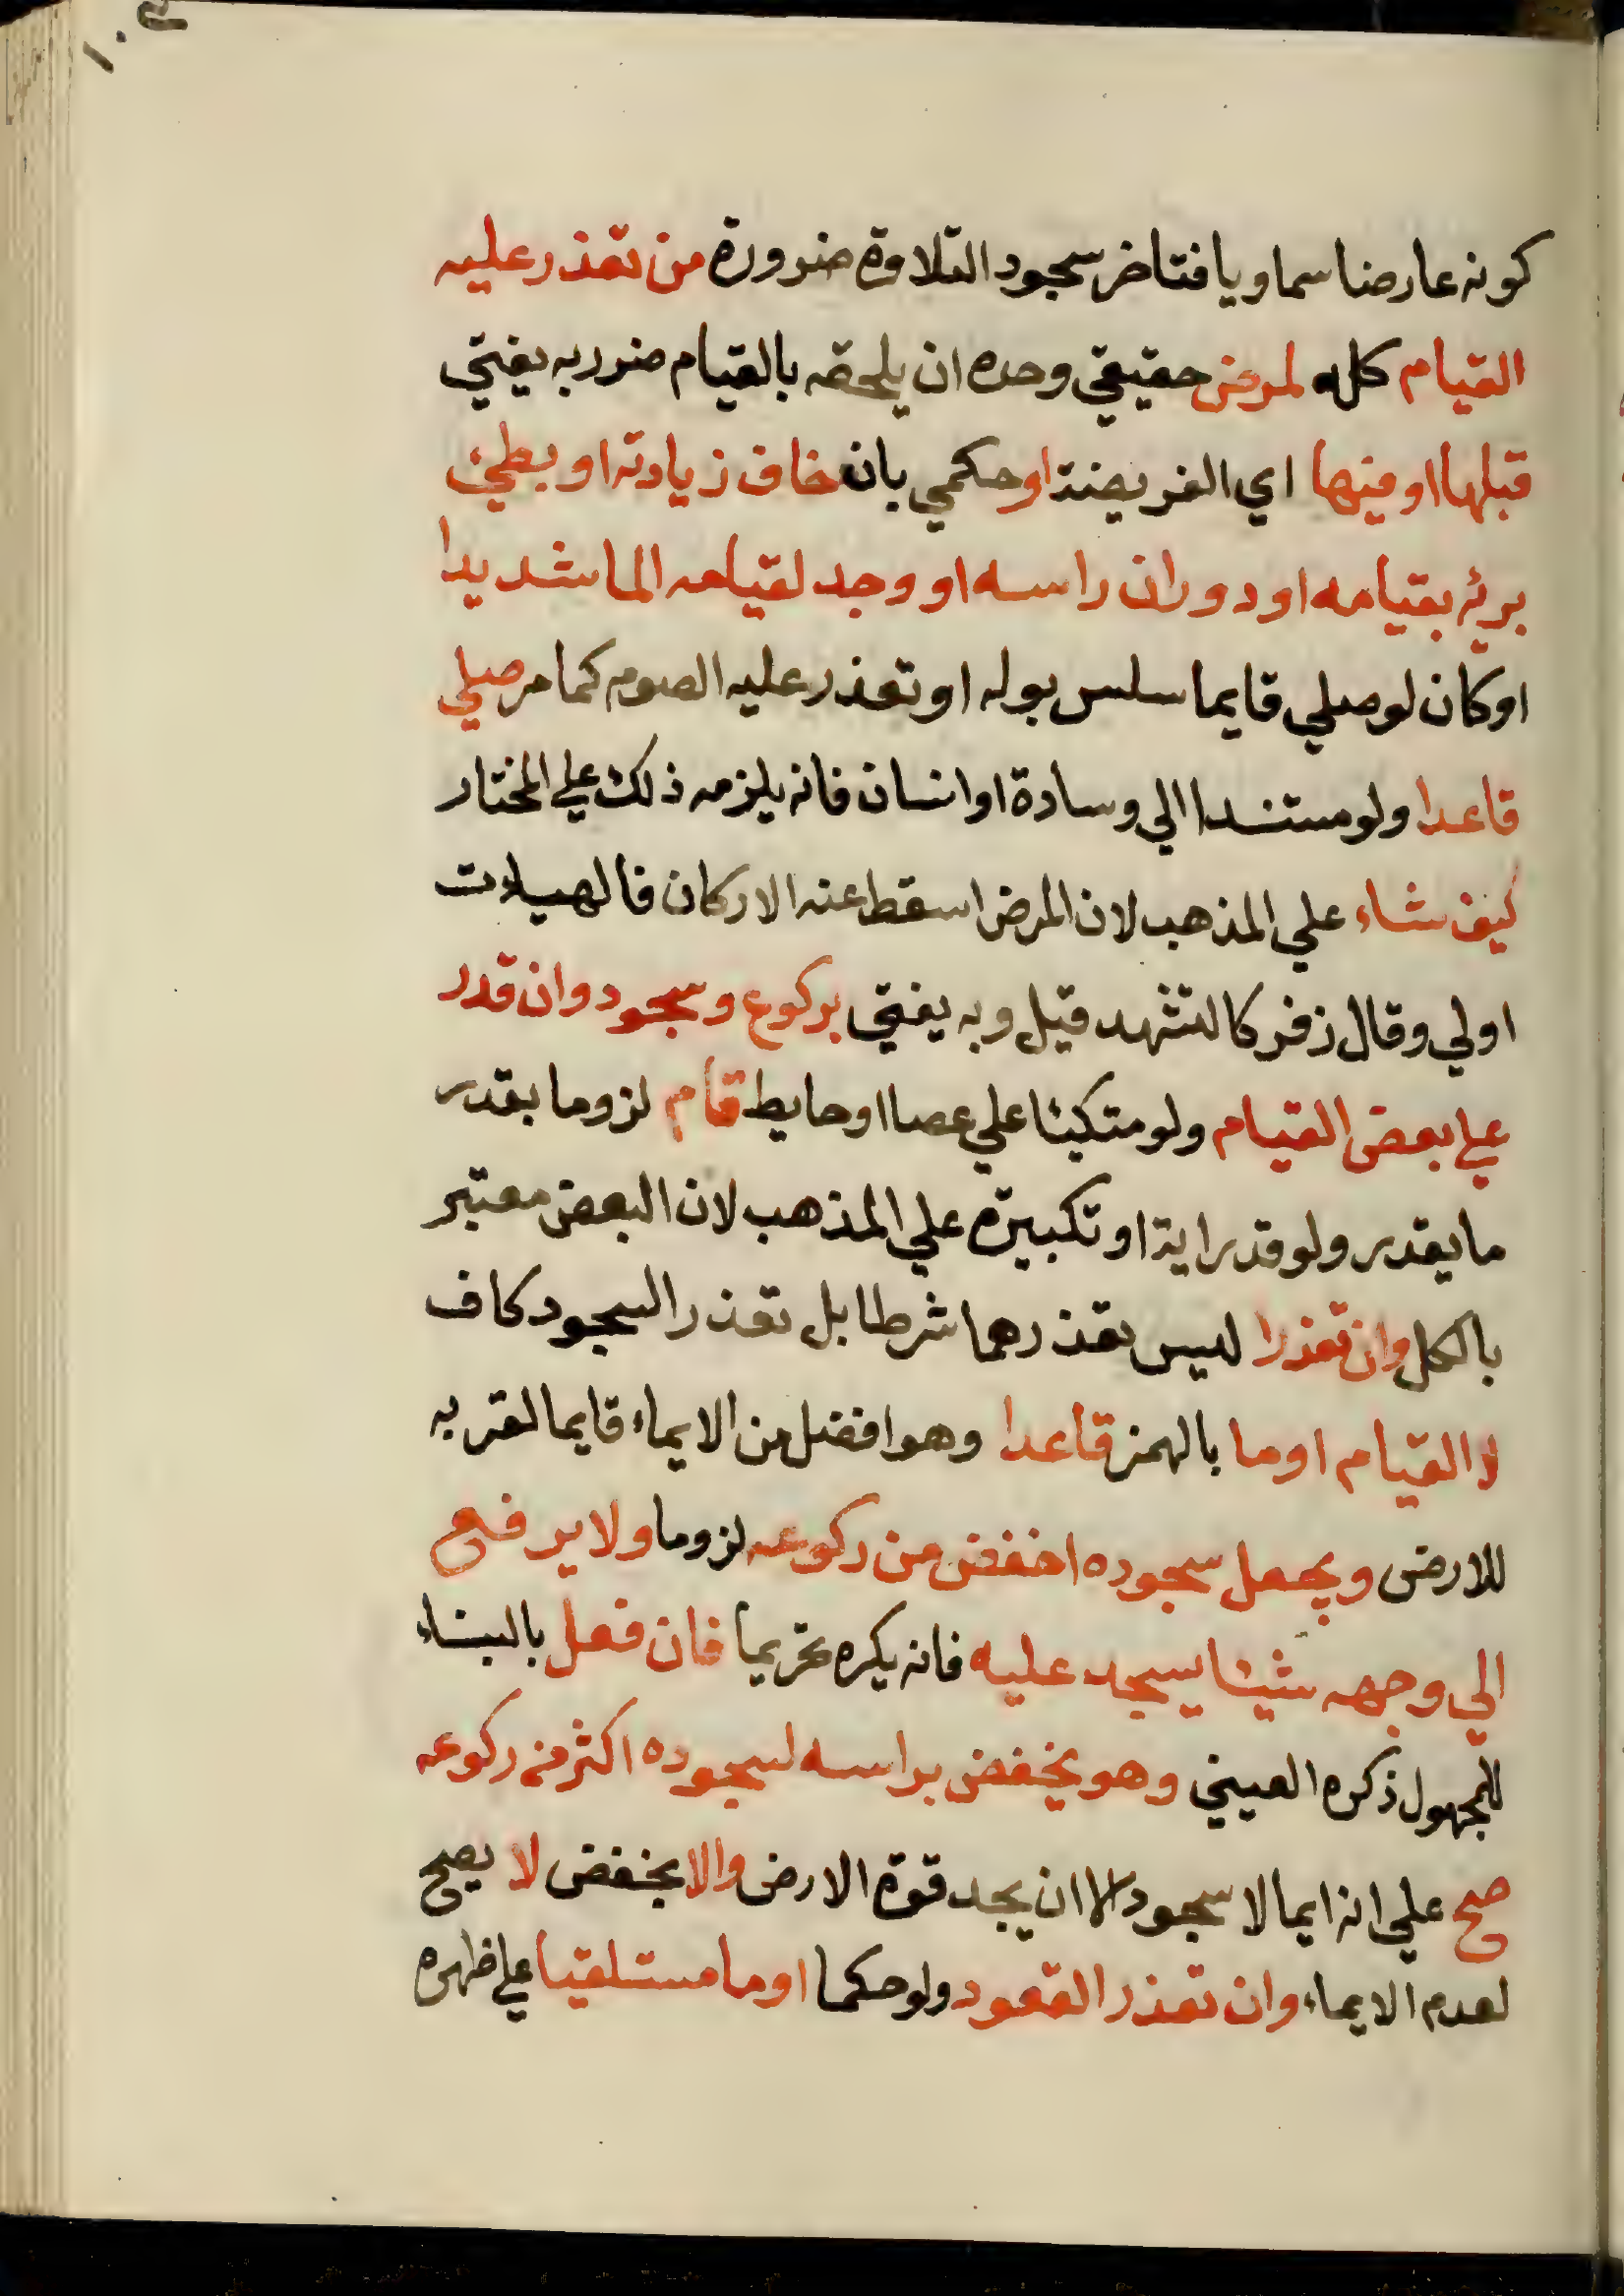 كونه عارضا سماويا فتاخر سجود التلاوة ضرورة من تعذر عليه
القيام كله لمرض حقيقي وحده ان يلحقه بالقيام ضرر به يفتي
قبلها او فيها اي الفريضة او حكمي بان خاف زيادته او بطئ
برئه بقيامه او دوران راسه او وجد لقيامه الما شديدا
او كان لو صلي قايما سلس بوله او تعذر عليه الصوم كما مر صلي
قاعدا ولو مستندا الي وسادة او انسان فانه يلزمه ذلك علي المختار
كيف شاء علي المذهب لان المرض اسقط عنه الاركان فالهيات
اولي وقال زفر كالتشهد قيل وبه يفتي بركوع وسجود وان قدر
علي بعض القيام ولو متكيئا علي عصا او حايط قام لزوما بقدر
ما يقدر ولو قدر اية او تكبيرة علي المذهب لان البعض معتبر
بالكل وان تعذرا ليس تعذرهما شرطا بل تعذر السجود كاف
لا القيام اوما بالهمز قاعدا وهو افضل من الايماء قايما لقربه
للارض ويجعل سجوده اخفض من ركوعه لزوما ولا يرفع
الي وجهه شيئا يسجد عليه فانه يكره تحريما فان فعل بالبناء
للمجهول ذكره العيني وهو يخفض براسه لسجوده اكثر من ركوعه
صح علي انه ايما لا سجود الا ان يجد قوة الارض والا يخفض لا يصح
لعدم الايماء وان تعذر القعود ولو حكما اوما مستلقيا علي ظهره